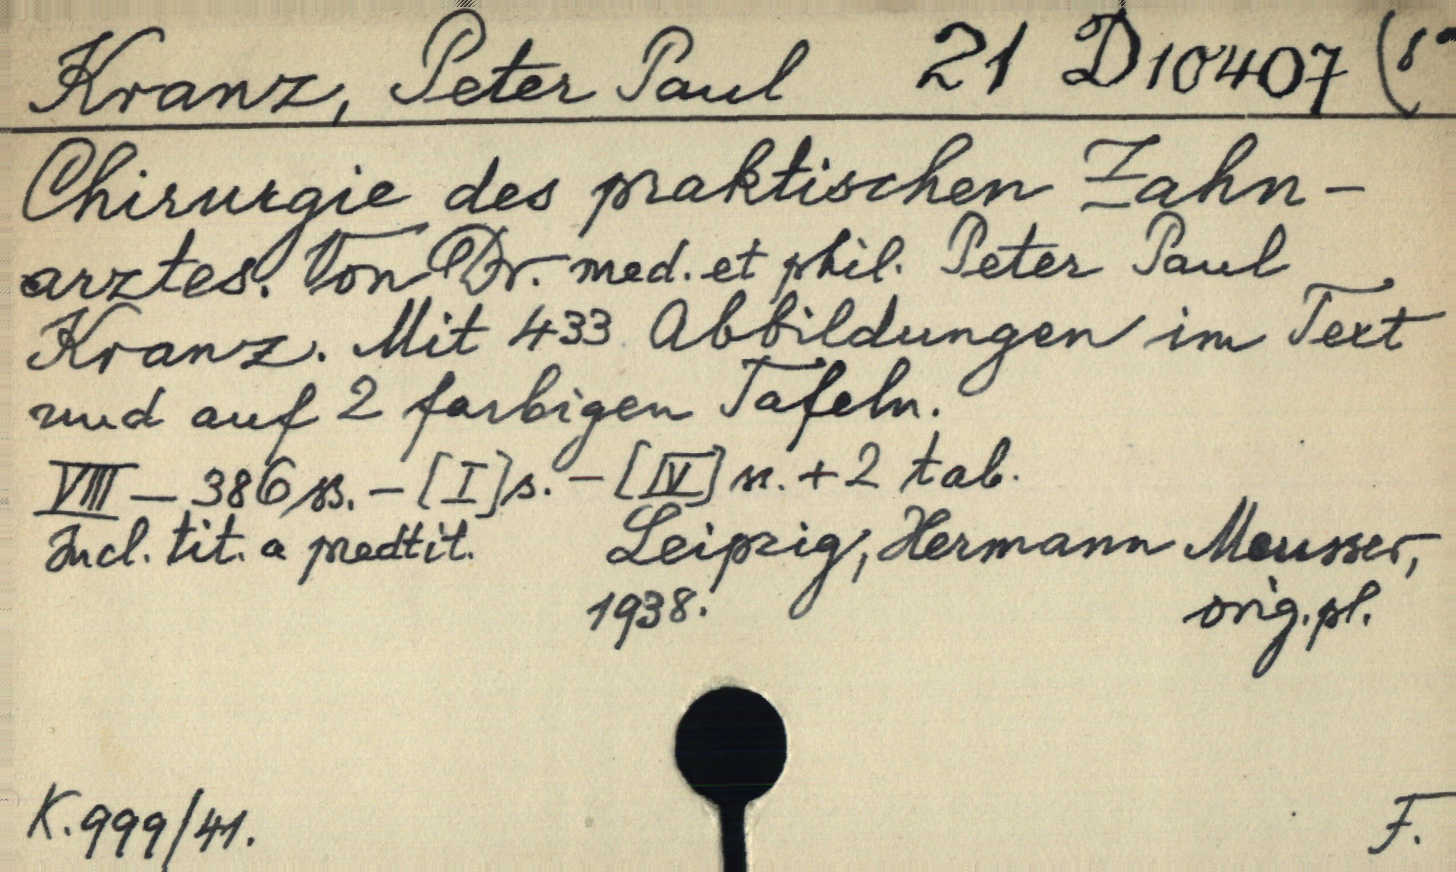 Kranz, Peter Paul 21 D 10407 (8°
Chirurgie des praktischen Zahn-
arztes. Von Dr. med. et phil. Peter Paul
Kranz. Mit 433 Abbildungen im Text
und auf 2 farbigen Tafeln.
VIII — 386 ss. – [I] s. – [IV] n. + 2 tab.
Incl. tit. a predtit. Leipzig, Hermann Meusser,
1938. orig. pl.
K. 999/41. F.